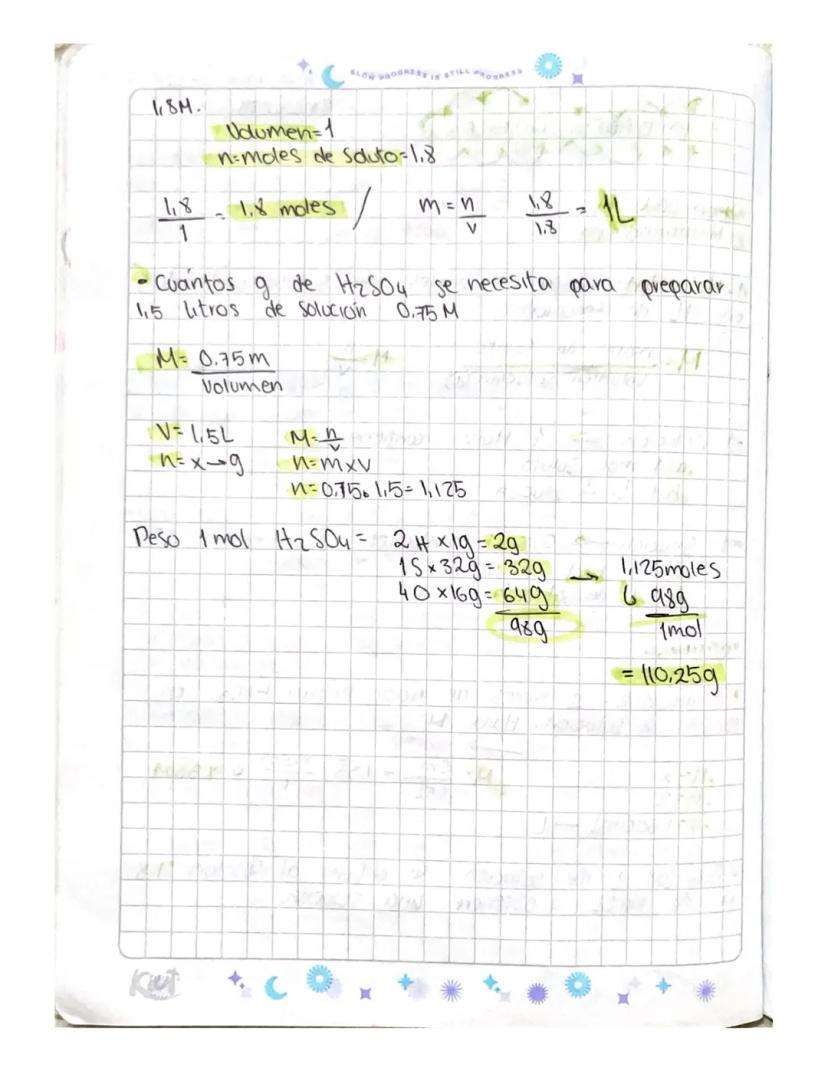 SLOW PROGRESS IS STILL PROGRESS
1,8M.
Volumen=1
n=moles de soluto=1,8
1,8/1 = 1,8 moles / m=n/v 1,8/1,8 = 1L
• Cuántos g de H2SO4 se necesita para preparar
1,5 litros de solución 0.75M
M= 0.75m/Volumen
V= 1,5L M=n/v
n= x→g n=mxv
n=0,75•1,5=1,125
Peso 1mol H2SO4= 2H x1g=2g
1S x32g= 32g → 1,125moles
4O x16g= 64g 98g/1mol
98g
= 110,25g
Kiut